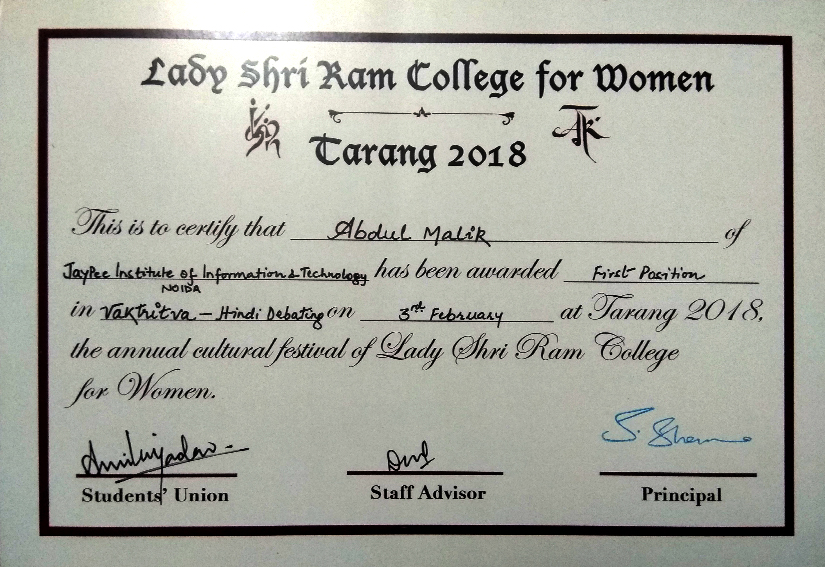 Lady Shri Ram College for Women
Tarang 2018
This is to certify that Abdul Malik of
JayPee Institute of Information & Technology has been awarded First Position
NOIDA
in Vaktritva – Hindi Debating on 3rd February at Tarang 2018,
the annual cultural festival of Lady Shri Ram College
for Women.
S. Sharma
Students' Union Staff Advisor Principal